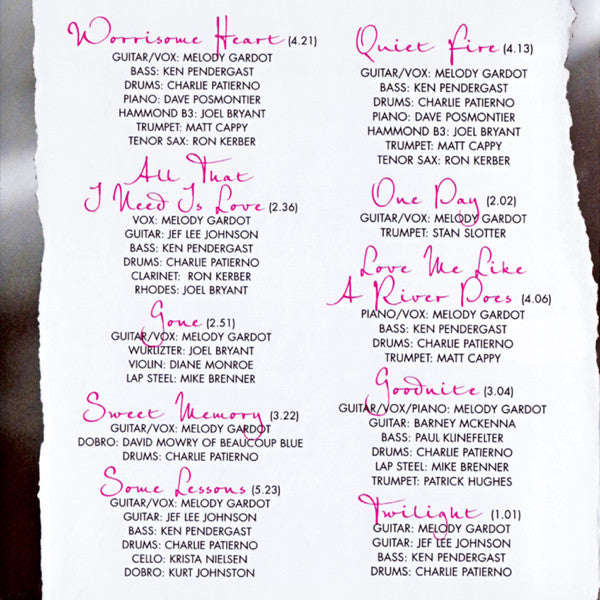 Worrisome Heart (4.21)
GUITAR/VOX: MELODY GARDOT
BASS: KEN PENDERGAST
DRUMS: CHARLIE PATIERNO
PIANO: DAVE POSMONTIER
HAMMOND B3: JOEL BRYANT
TRUMPET: MATT CAPPY
TENOR SAX: RON KERBER
All That
I Need Is Love (2.36)
VOX: MELODY GARDOT
GUITAR: JEF LEE JOHNSON
BASS: KEN PENDERGAST
DRUMS: CHARLIE PATIERNO
CLARINET: RON KERBER
RHODES: JOEL BRYANT
Gone (2.51)
GUITAR/VOX: MELODY GARDOT
WURLIZTER: JOEL BRYANT
VIOLIN: DIANE MONROE
LAP STEEL: MIKE BRENNER
Sweet Memory (3.22)
GUITAR/VOX: MELODY GARDOT
DOBRO: DAVID MOWRY OF BEAUCOUP BLUE
DRUMS: CHARLIE PATIERNO
Some Lessons (5.23)
GUITAR/VOX: MELODY GARDOT
GUITAR: JEF LEE JOHNSON
BASS: KEN PENDERGAST
DRUMS: CHARLIE PATIERNO
CELLO: KRISTA NIELSEN
DOBRO: KURT JOHNSTON
Quiet Fire (4.13)
GUITAR/VOX: MELODY GARDOT
BASS: KEN PENDERGAST
DRUMS: CHARLIE PATIERNO
PIANO: DAVE POSMONTIER
HAMMOND B3: JOEL BRYANT
TRUMPET: MATT CAPPY
TENOR SAX: RON KERBER
One Day (2.02)
GUITAR/VOX: MELODY GARDOT
TRUMPET: STAN SLOTTER
Love Me Like
A River Does (4.06)
PIANO/VOX: MELODY GARDOT
BASS: KEN PENDERGAST
DRUMS: CHARLIE PATIERNO
TRUMPET: MATT CAPPY
Goodnite (3.04)
GUITAR/VOX/PIANO: MELODY GARDOT
GUITAR: BARNEY MCKENNA
BASS: PAUL KLINEFELTER
DRUMS: CHARLIE PATIERNO
LAP STEEL: MIKE BRENNER
TRUMPET: PATRICK HUGHES
Twilight (1.01)
GUITAR: MELODY GARDOT
GUITAR: JEF LEE JOHNSON
BASS: KEN PENDERGAST
DRUMS: CHARLIE PATIERNO